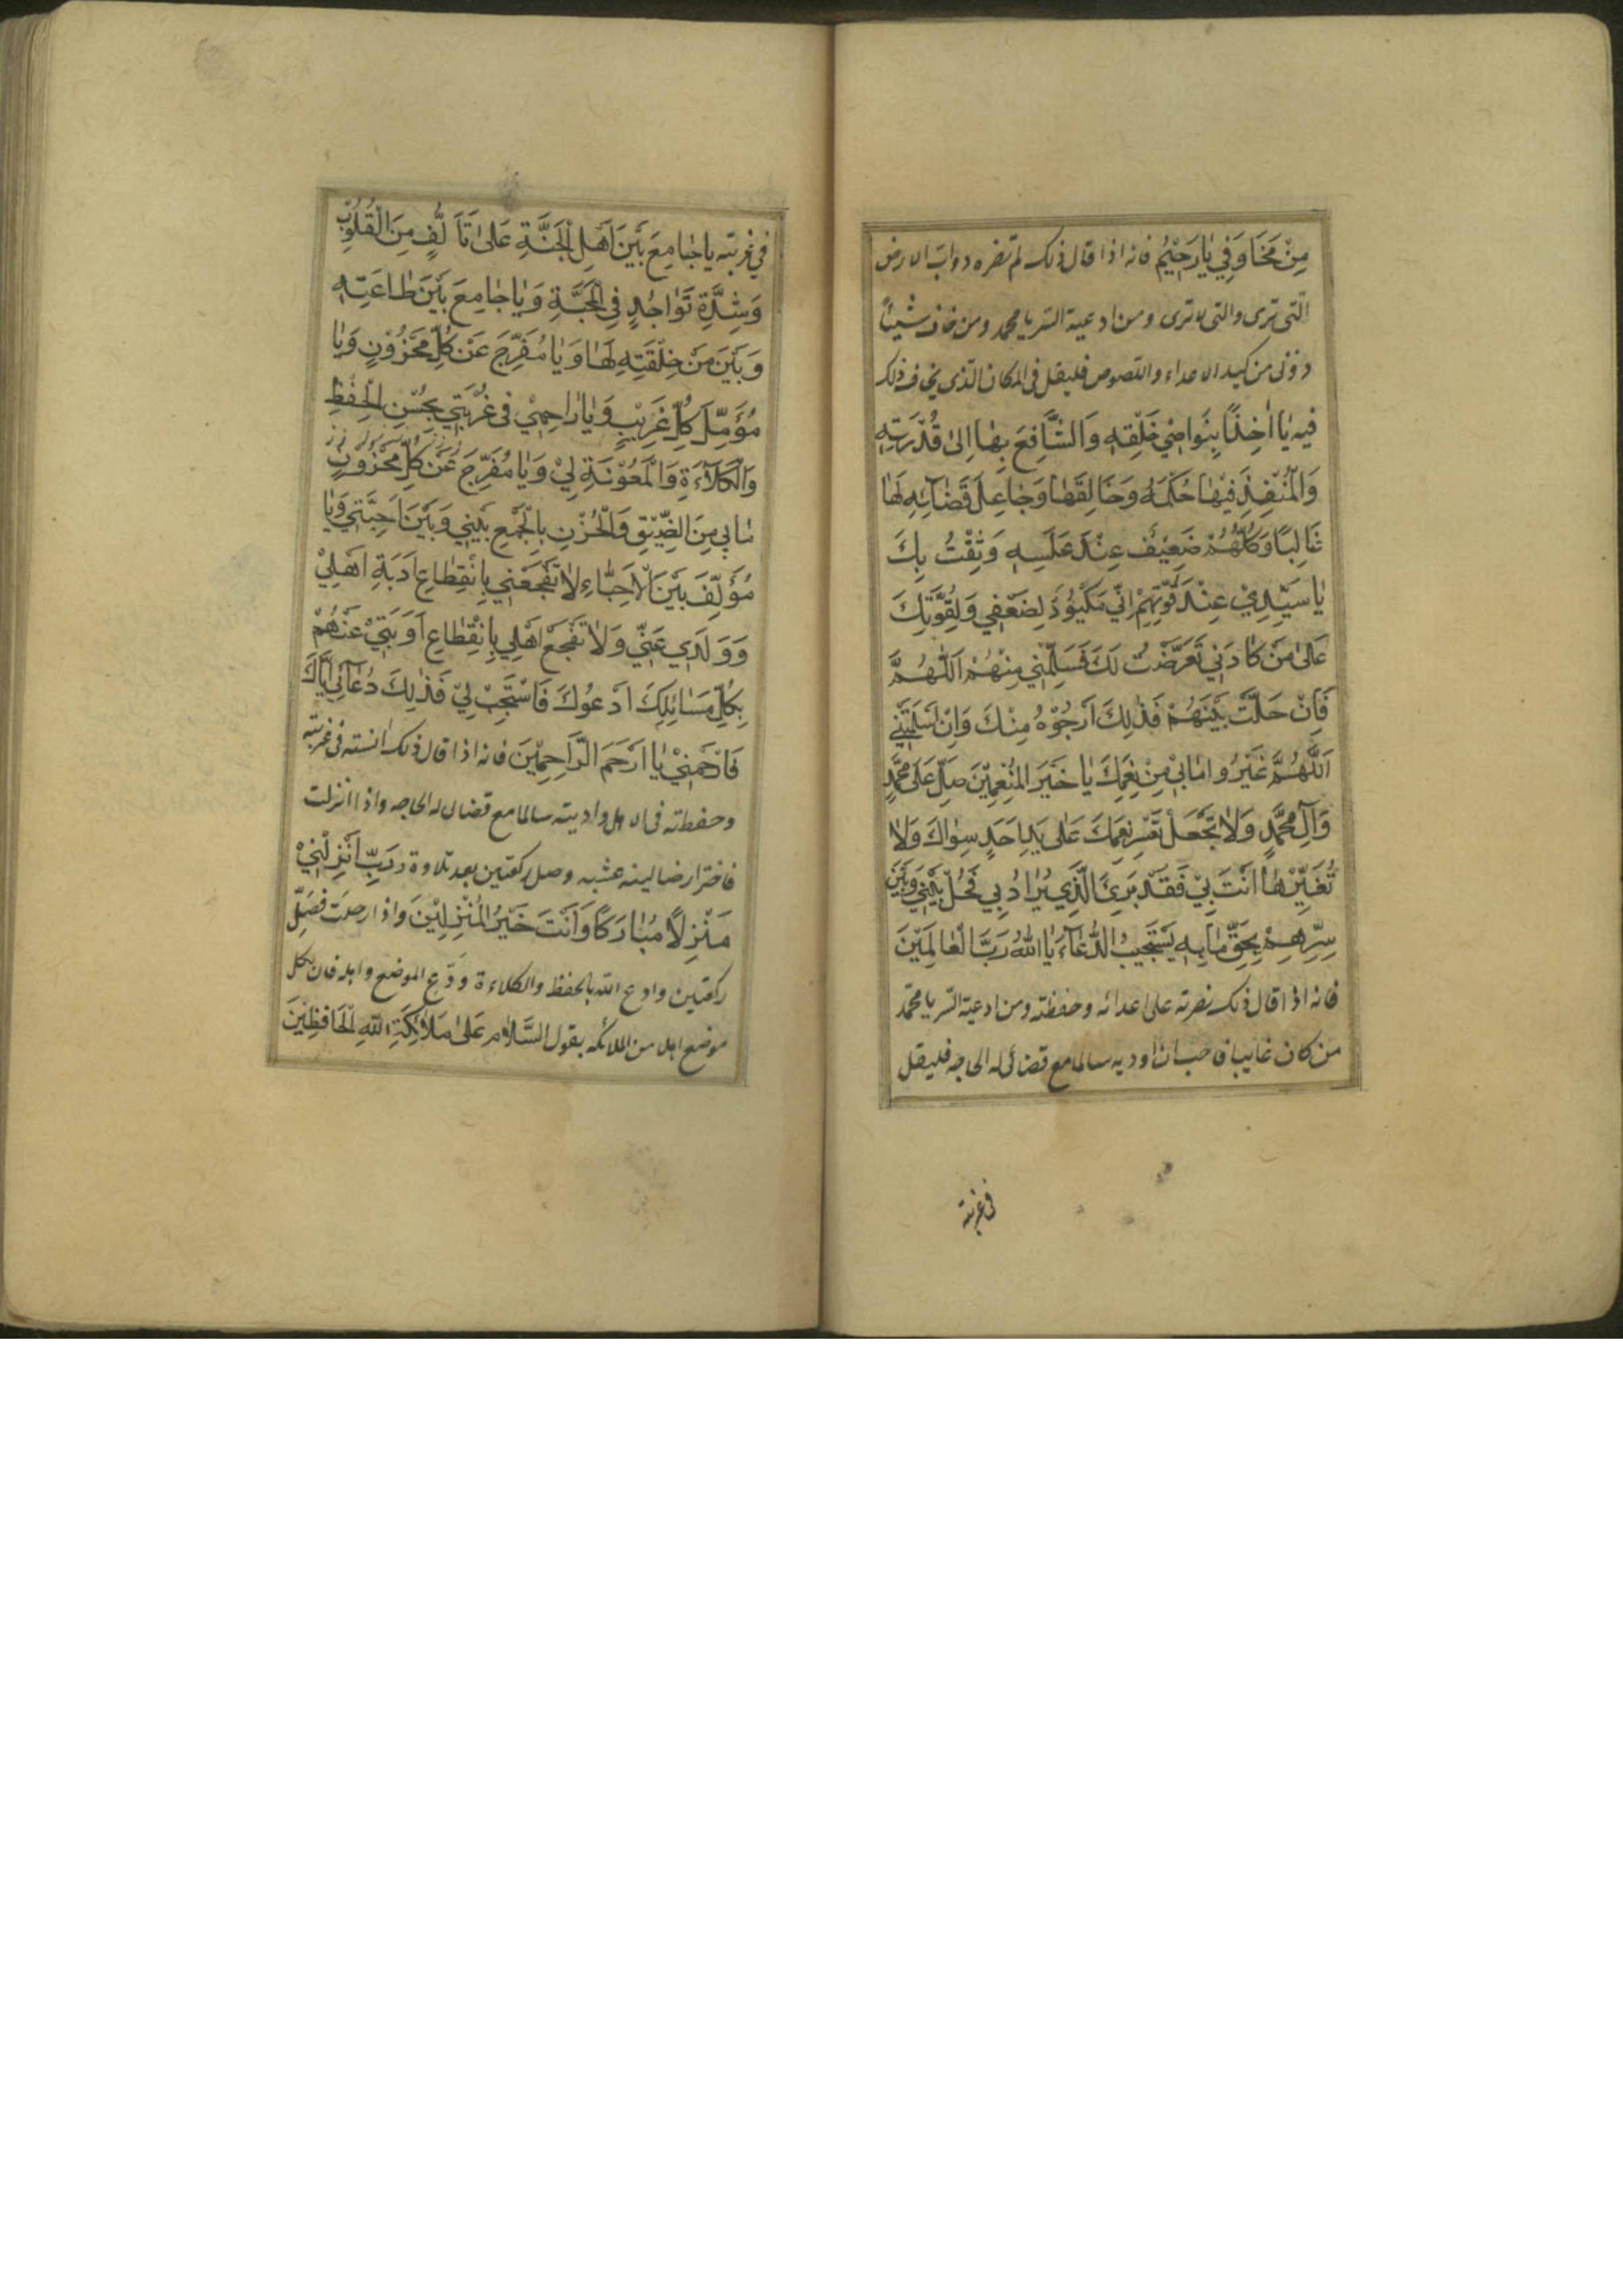 مِنْ مَخَاوَفِي يَا رَحِيْمُ فانه اذا قال ذلک لم تضره دواب الارض
الّتی تری والتی لا تری ومن ادعیة السّر یا محمد ومن خاف شیئاً
دونی من کید الاعداء واللصوص فلیقل فی المکان الّذی یخاف ذلک
فیه يَا اٰخِذًا بِنَوَاصِيْ خَلْقِهِ وَالشَّافِعَ بِهَا اِلىٰ قُدْرَتِهِ
وَالْمُنْفِذَ فِيْهَا حُكْمَهُ وَخَالِقَهَا وَجَاعِلَ قَضَائِهِ لَهَا
غَالِبًا وَكُلُّهُمْ ضَعِيْفٌ عِنْدَ غَلَبِهِ وَثِقْتُ بِكَ
يَا سَيِّدِيْ عِنْدَ قُوَّتِهِمْ اِنّي مَكْيُوْدٌ لِضَعْفِي وَلِقُوَّتِكَ
عَلىٰ مَنْ كَادَنِي تَعَرَّضْتُ لَكَ فَسَلِّمْنِي مِنْهُمْ اَللّٰهُمَّ
فَاِنْ حَلَّتْ بَيْنَهُمْ فَذٰلِكَ اَرْجُوْهُ مِنْكَ وَاِنْ اَسْلَمْتَنِي
اَللّٰهُمَّ غَيَّرُوا مَا بِيْ مِنْ نِعَمِكَ يَا خَيْرَ الْمُنْعِمِيْنَ صَلِّ عَلىٰ مُحَمَّدٍ
وَآلِ مُحَمَّدٍ وَلَا تَجْعَلْ تَغَيُّرَ نِعَمِكَ عَلىٰ يَدِ اَحَدٍ سِوَاكَ وَلَا
تُغَيِّرْهَا اَنْتَ بِيْ فَقَدْ تَرىٰ الَّذِي يُرَادُ بِي فَحُلْ بَيْنِي وَبَيْنَ
شَرِّهِمْ بِحَقِّ مَا بِهِ يَسْتَجِيبُ الدُّعَآءَ يَا اَللهُ رَبَّ الْعَالَمِيْنَ
فانه اذا قال ذلک نصرته علی اعدائه وحفظته ومن ادعیة السّر یا محمّد
من کان غایبا فاحب ان اودیه سالما مع قضائی له الحاجه فلیقل
فی غربته
في غربته يا جَامِعَ بَيْنَ اَهْلِ الْجَنَّةِ عَلىٰ تَأَلُّفٍ مِنَ الْقُلُوْبِ
وَشِدَّةِ تَوَاجُدٍ فِي الْمَحَبَّةِ وَيَا جَامِعَ بَيْنَ طَاعَتِهِ
وَبَيْنَ مَنْ خَلَقَتِهِ لَهَا وَيَا مُفَرِّجَ عَنْ كُلِّ مَحْزُوْنٍ وَيَا
مُؤَمِّلَ كُلِّ غَرِيْبٍ وَيَا رَاحِمِيْ فِي غُرْبَتِي بِحُسْنِ الْحِفْظِ
وَالْكَلَاءَةِ وَالْمَعُوْنَةِ لِيْ وَيَا مُفَرِّجَ عَنْ كُلِّ مَحْزُوْنٍ
مَا بِي مِنَ الضِّيْقِ وَالْحُزْنِ بِالْجَمْعِ بَيْنِي وَبَيْنَ اَحِبَّتِي وَيَا
مُؤَلِّفَ بَيْنَ الْاَحِبَّاءِ لَا تَفْجَعْنِي بِاِنْقِطَاعِ اَدَبَةِ اَهْلِيْ
وَوَلَدِي عَنِّي وَلَا تَفْجَعْ اَهْلِي بِاِنْقِطَاعِ اَوْبَتِيْ عَنْهُمْ
بِكُلِّ مَسَائِلِكَ اَدْعُوْكَ فَاسْتَجِبْ لِيْ فَذٰلِكَ دُعَائِي اِيَّاكَ
فَارْحَمْنِيْ يَا اَرْحَمَ الرَّاحِمِيْنَ فانه اذا قال ذلک انسته فی غربته
وحفظته فی الاهل وادیته سالما مع قضائی له الحاجه واذا انزلت
فاختر ارضا لینه عشبه وصل رکعتین بعد تلاوة رَبِّ اَنْزِلْنِيْ
مَنْزِلًا مُبَارَكًا وَاَنْتَ خَيْرُ الْمُنْزِلِيْنَ واذا رحلت فصلّ
رکعتین وادع الله بالحفظ والکلاءة وودّع الموضع واهله فان لکل
موضع اهل من الملائکه بقول السَّلَامُ عَلىٰ مَلَائِكَةِ اللهِ الْحَافِظِيْنَ